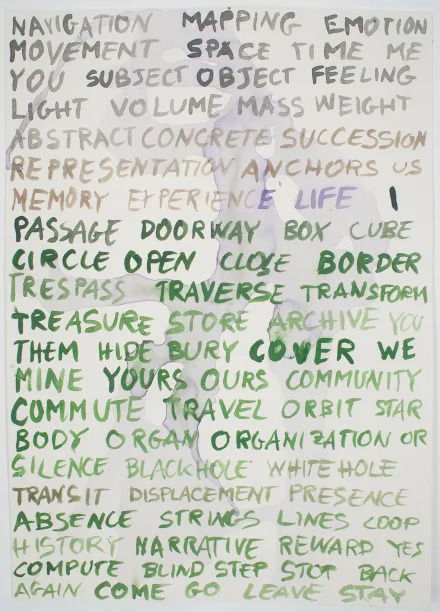 NAVIGATION MAPPING EMOTION
MOVEMENT SPACE TIME ME
YOU SUBJECT OBJECT FEELING
LIGHT VOLUME MASS WEIGHT
ABSTRACT CONCRETE SUCCESSION
REPRESENTATION ANCHORS US
MEMORY EXPERIENCE LIFE I
PASSAGE DOORWAY BOX CUBE
CIRCLE OPEN CLOSE BORDER
TRESPASS TRAVERSE TRANSFORM
TREASURE STORE ARCHIVE YOU
THEM HIDE BURY COVER WE
MINE YOURS OURS COMMUNITY
COMMUTE TRAVEL ORBIT STAR
BODY ORGAN ORGANIZATION OR
SILENCE BLACKHOLE WHITEHOLE
TRANSIT DISPLACEMENT PRESENCE
ABSENCE STRINGS LINES LOOP
HISTORY NARRATIVE REWARD YES
COMPUTE BLIND STEP STOP BACK
AGAIN COME GO LEAVE STAY